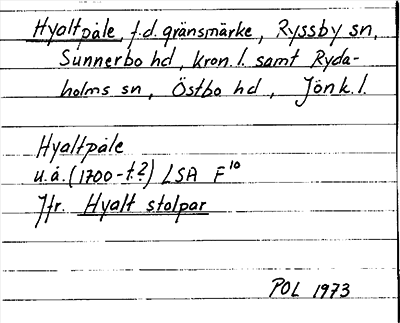 Hyaltpåle, f.d. gränsmärke, Ryssby sn,
Sunnerbo hd, Kron. l. samt Ryda-
holms sn, Östbo hd, Jönk. l.
Hyaltpåle
u.å. (1700-t.?) LSA F10
Jfr. Hyalt stolpar
POL 1973